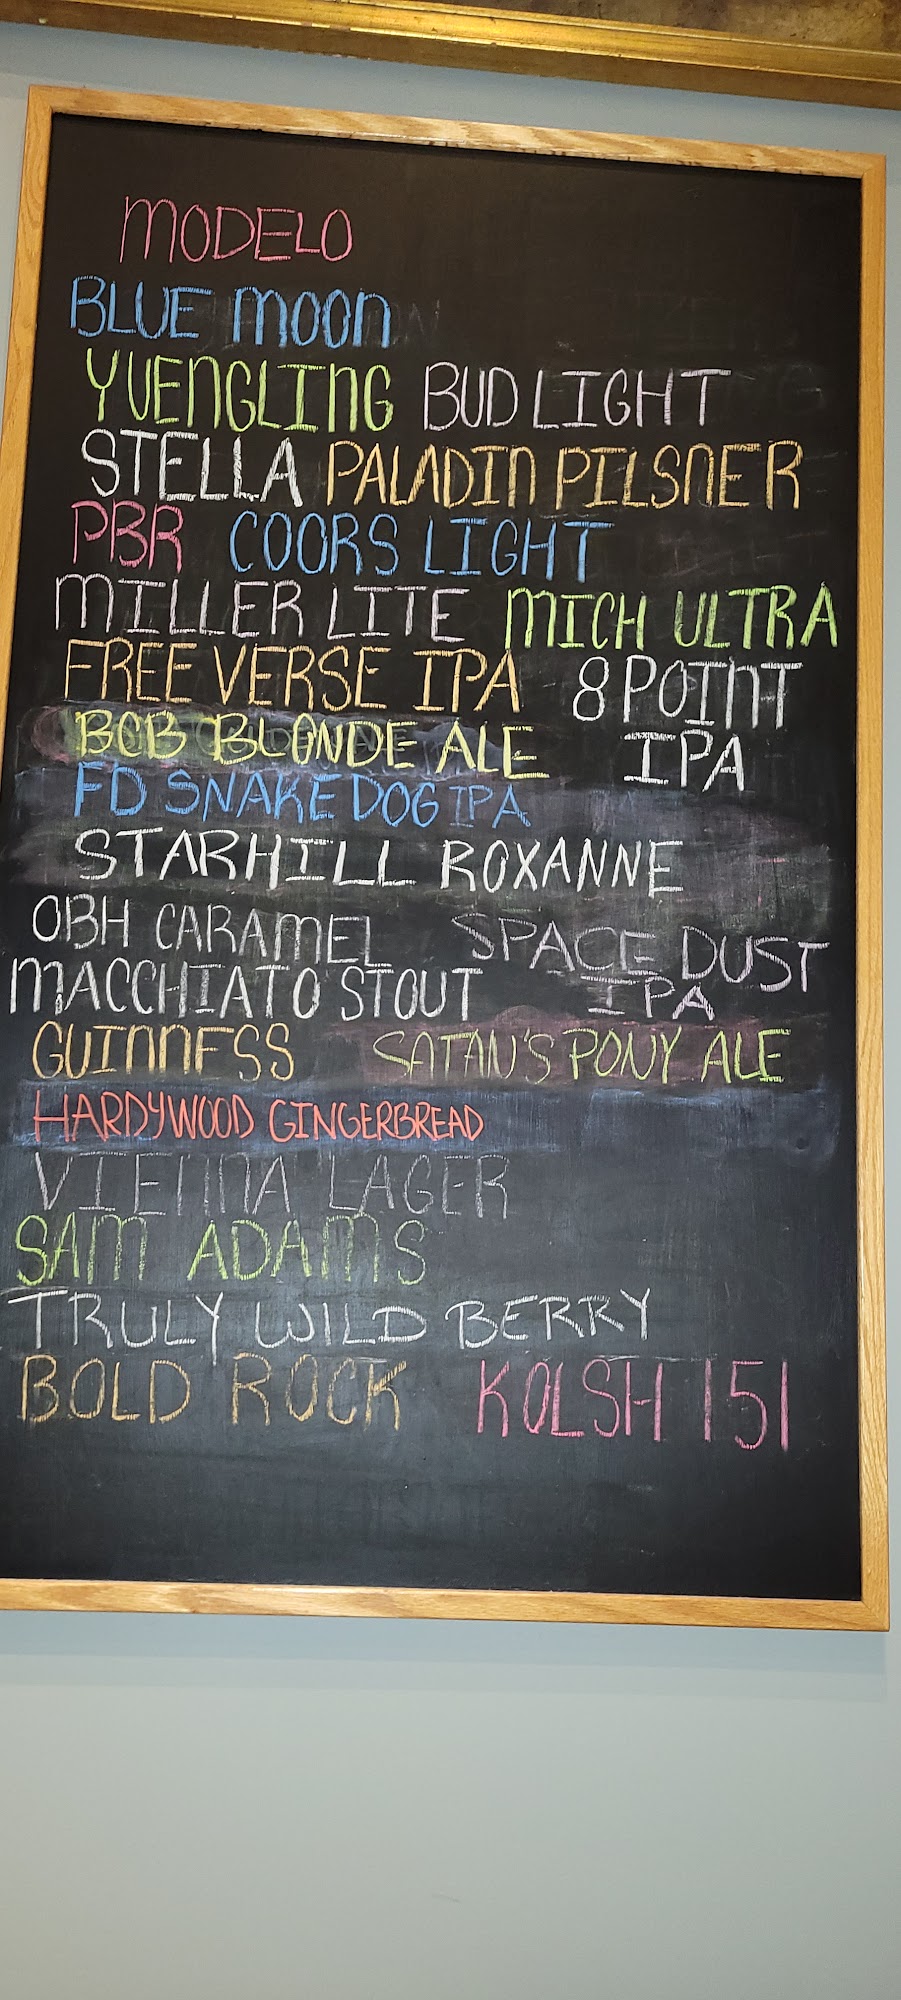 MODELO
BLUE MOON
YUENGLING BUD LIGHT
STELLA PALADIN PILSNER
PBR COORS LIGHT
MILLER LITE MICH ULTRA
FREE VERSE IPA 8 POINT
BCB BLONDE ALE IPA
FD SNAKE DOG IPA
STARHILL ROXANNE
OBH CARAMEL SPACE DUST
MACCHIATO STOUT IPA
GUINNESS SATAN'S PONY ALE
HARDYWOOD GINGERBREAD
VIENNA LAGER
SAM ADAMS
TRULY WILD BERRY
BOLD ROCK KOLSH 151